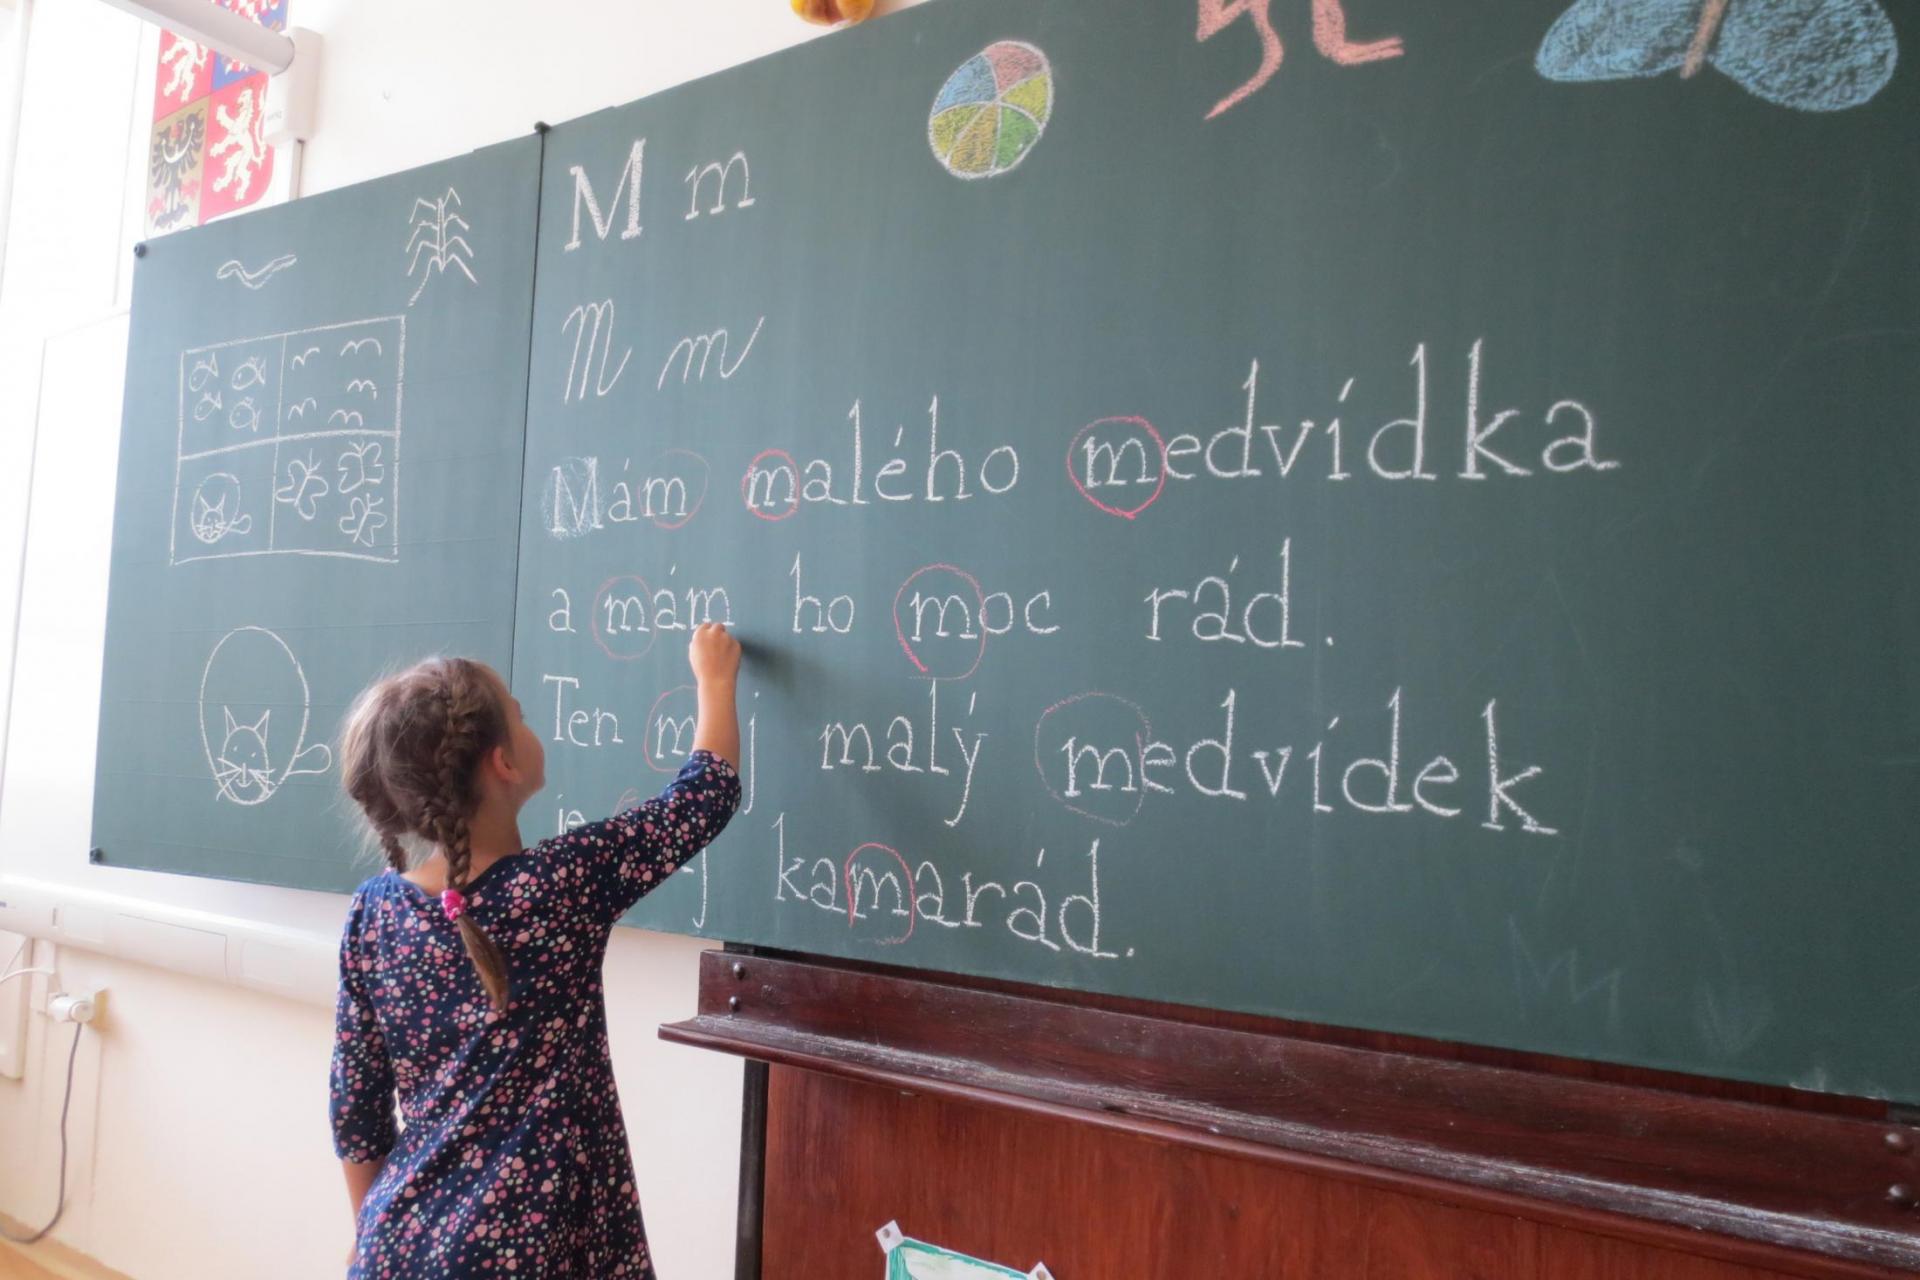 M m
M m
Mám malého medvídka
a mám ho moc rád.
Ten malý medvídek
je kamarád.